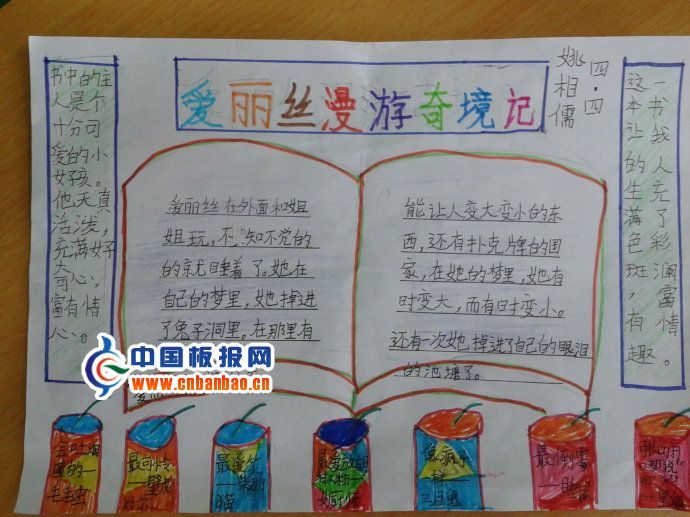 爱丽丝漫游奇境记
四.四
姚相儒
书中的主
人是个
十分可
爱的小
女孩。
他天真
活泼，
充满好
奇心，
富有情
心。
爱丽丝在外面和姐
姐玩，不知不觉的
的就睡着了。她在
自己的梦里，她掉进
了兔子洞里。在那里有
能让人变大变小的东
西，还有扑克牌的国
家，在她的梦里，她有
时变大，而有时变小。
还有一次她掉进了自己的眼泪
的池塘了。
一书我人充了彩澜富情。
这本让的生满色斑，有趣
中国板报网
www.cnbanbao.cn
会吐烟
圈的一
毛毛虫
最可怜
最爱笑
猫
最爱放胡
椒粉一
女厨师
像疯子
一样一
三月兔
最倒霉
睡鼠